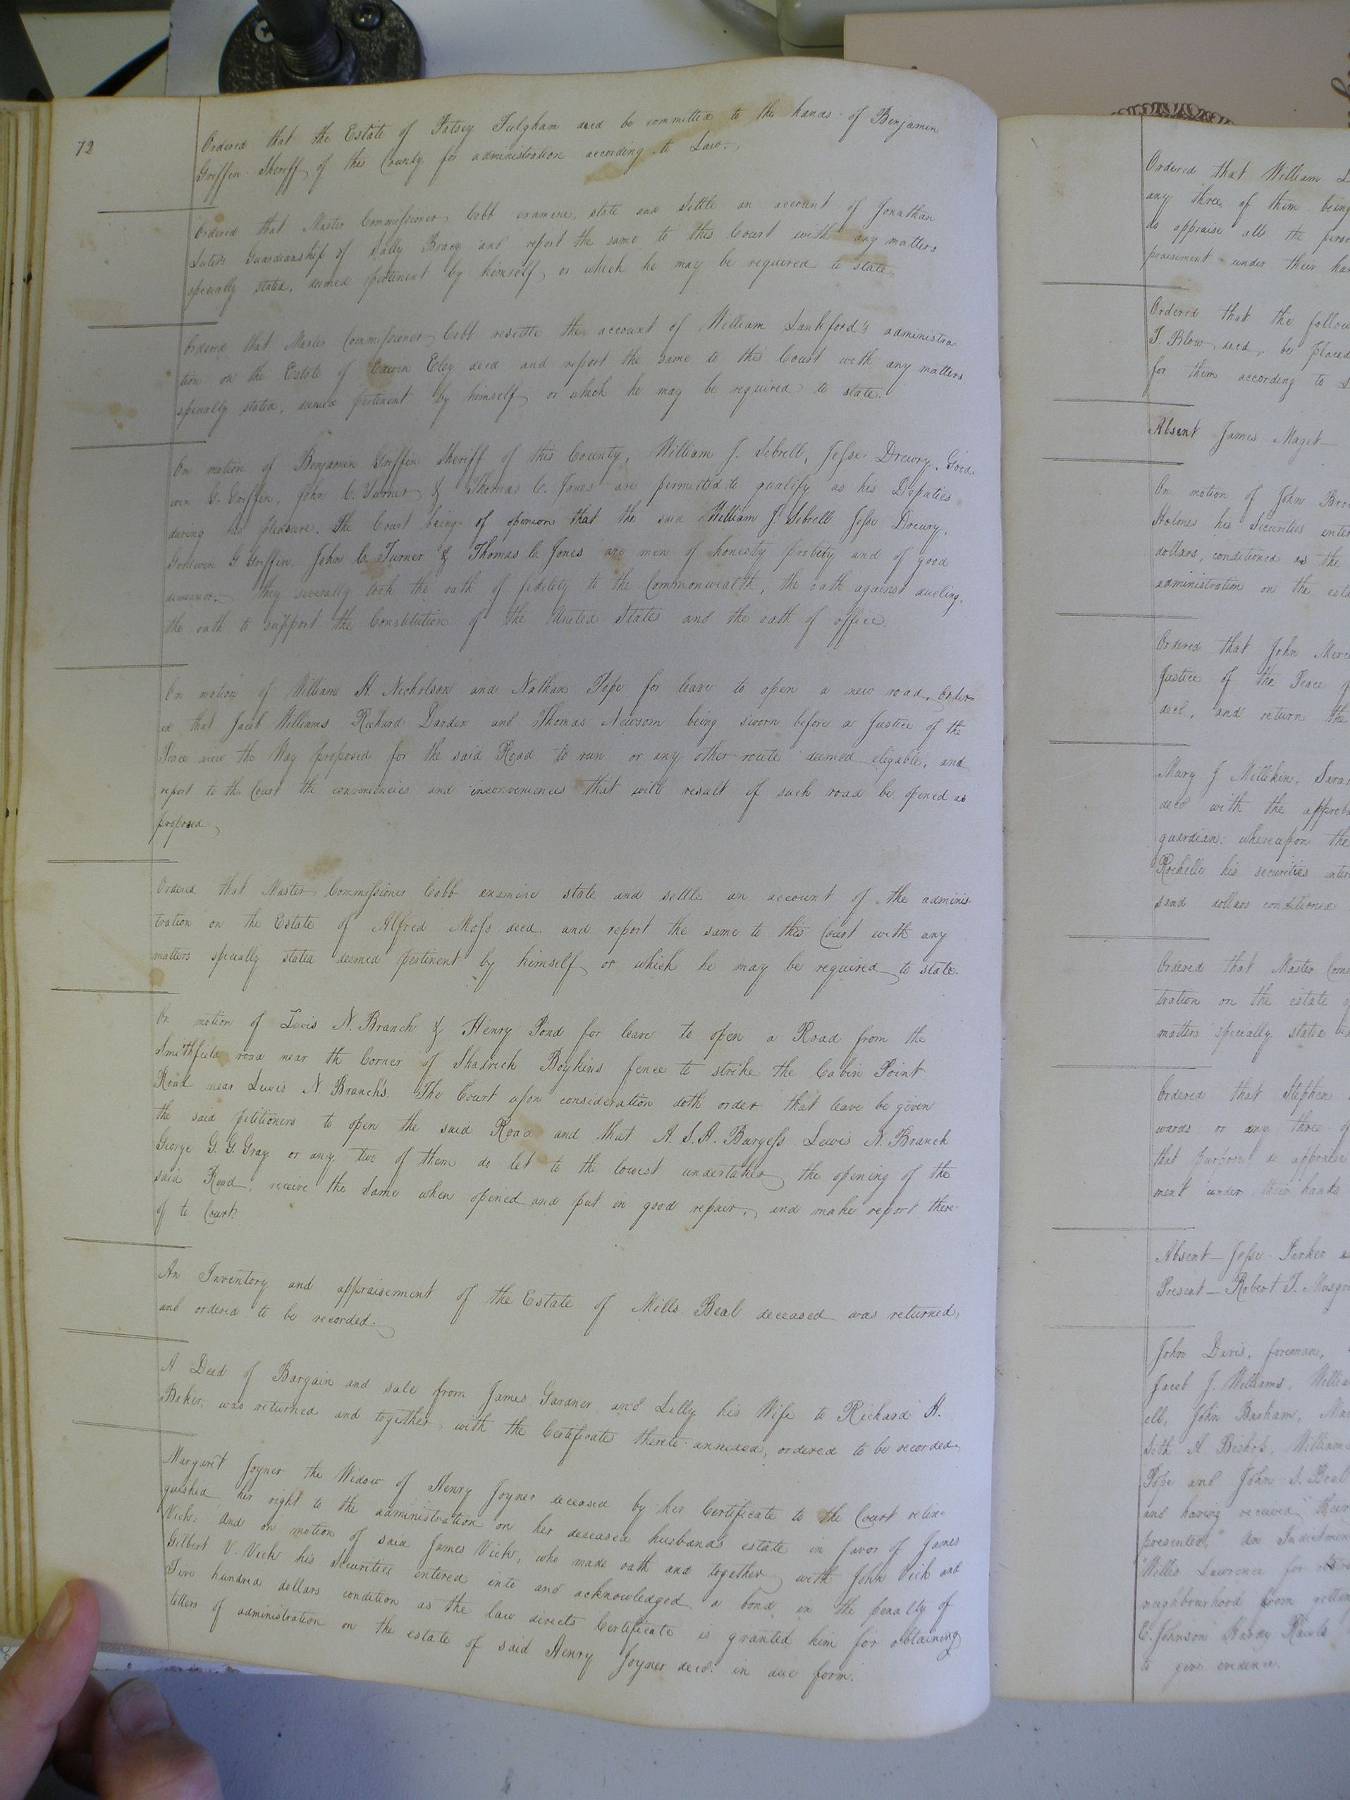 72
Ordered that the Estate of Patsey Fulgham decd be committed to the hands of Benjamin
Griffin Sheriff of this County for administration according to Law.
Ordered that Master Commissioner Cobb examine, state and settle an account of Jonathan
Guardianship of Sally Bracy and report the same to this Court with any matters
specially stated, deemed pertinent by himself, or which he may be required to state
Ordered that Master Commissioner Cobb resettle the account of William Lankford's administra
tion on the Estate of Edwin Eley decd and report the same to this Court with any matters
specially stated, deemed pertinent by himself, or which he may be required to state.
On motion of Benjamin Griffin Sheriff of this County, William J. Sebrell, Jesse Drewry, Good
win G. Griffin, John C. Turner & Thomas C. Jones are permitted to qualify as his Deputies
during his pleasure. The Court being of opinion that the said William J. Sebrell Jesse Drewry,
Goodwin G Griffin, John C. Turner & Thomas C. Jones are men of honesty probity and of good
demeanor. They severally took the oath of fidelity to the Commonwealth, the oath against dueling,
the oath to support the Constitution of the United States and the oath of office.
On motion of William H. Nicholson and Nathan Pope for leave to open a new road. Order
ed that Jacob Williams Richard Darden and Thomas Newsom being sworn before a Justice of the
Peace view the Way proposed for the said Road to run or any other route deemed eligable, and
report to the Court the conveniencies and inconveniences that will result if such road be opened as
proposed
Ordered that Master Commissioner Cobb examine state and settle an account of the adminis
tration on the Estate of Alfred Moss decd. and report the same to this Court with any
matters specially stated deemed pertinent by himself or which he may be required to state.
On motion of Lewis N. Branch & Henry Pond for leave to open a Road from the
Smithfield road near th Corner of Shadrick Boykins fence to strike the Cabin Point
Road near Lewis N. Branch's. The Court upon consideration doth order that leave be given
the said petitioners to open the said Road and that A. S. H. Burgess Lewis N. Branch
George G. G. Gray or any two of them do let to th lowest undertaker the opening of the
said Road, receive the same when opened and put in good repair, and make report there
of to Court.
An Inventory and appraisement of the Estate of Mills Beal deceased was returned,
and ordered to be recorded.
A Deed of Bargain and sale from James Gardner and Lilly his Wife to Richard H.
Baker, was returned and together with the Certificate thereto annexed, ordered to be recorded.
Margaret Joyner the Widow of Henry Joyner deceased by her Certificate to the Court relin
quished her right to the administration on her deceased husbands estate in favor of James
Vick: And on motion of said James Vick, who made oath and together with John Vick and
Gilbert V. Vick his Securities entered into and acknowledged a bond in the penalty of
Five hundred dollars condition as the law directs Certificate is granted him for obtaining
letters of administration on the estate of said Henry Joyner decd. in due form.
Ordered that William
any three of them being
do appraise all the
praisement under their
Ordered that the
T. Blow decd, be placed
for them according to
Absent James Maget
On motion of John
Holmes his Securities
dollars, conditioned as the
administration on the
Ordered that John
Justice of the Peace
decd, and return the
Mary J Millikin,
decd with the
guardian: whereupon the
Rochelle his securities
sand dollars conditioned
Ordered that Master
tration on the estate
matters specially stated
Ordered that Stephen
wards or any three
that purpose do appraise
ment under their hands
Absent Jesse Parker
Present Robert T.
John Davis, foreman,
Jacob J. Williams,
ell, John Barham,
Seth A Bishop, William
Pope and John S. Beal
and having received
presented, An Indictment
Willis Lawrence for
neighbourhood from
C. Johnson Hardy Rawls
to give evidence.